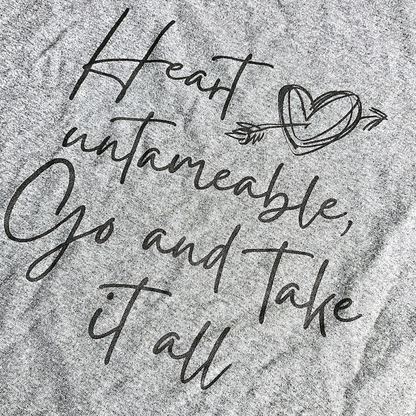 Heart
untameable,
Go and Take
it all